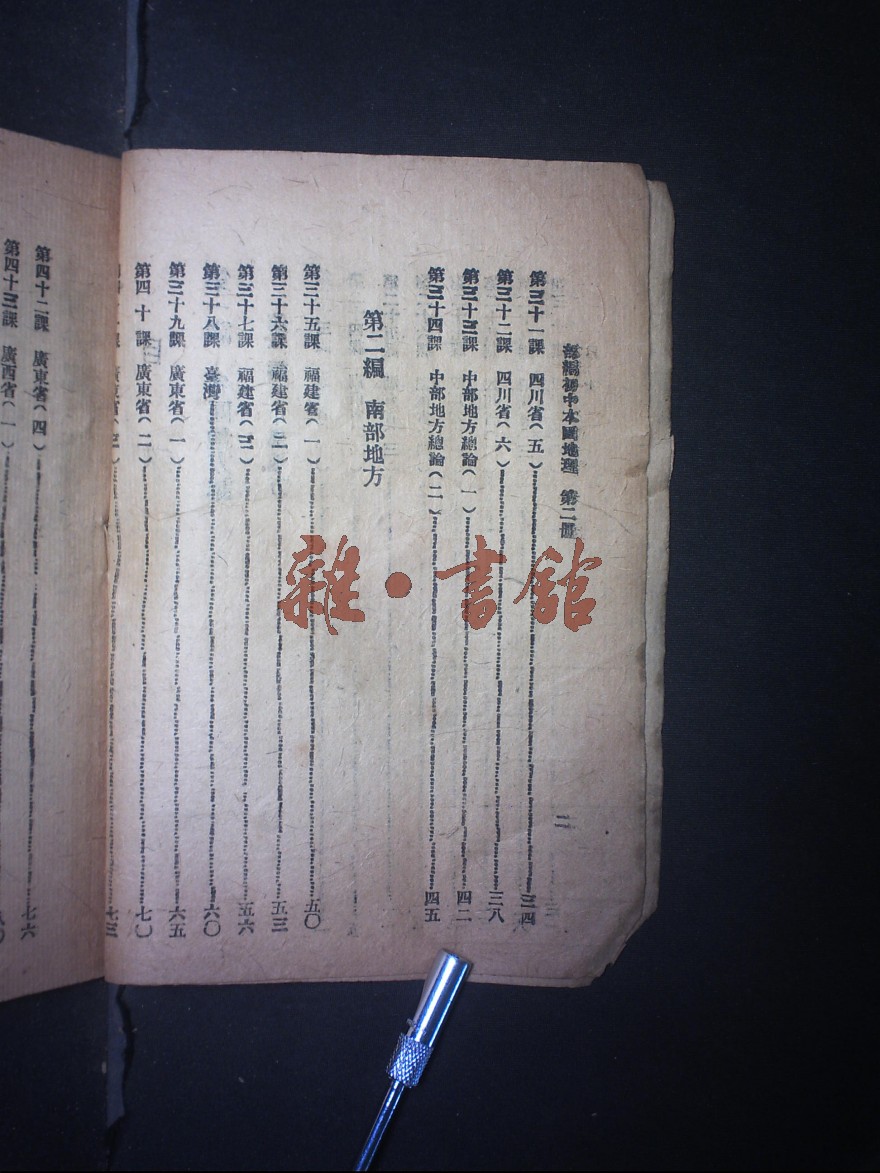 部編初中本國地理 第二冊
二
第三十一課 四川省(五)……三四
第三十二課 四川省(六)……三八
第三十三課 中部地方總論(一)……四二
第三十四課 中部地方總論(二)……四五
第二編 南部地方
第三十五課 福建省(一)……五〇
第三十六課 福建省(二)……五三
第三十七課 福建省(三)……五六
第三十八課 臺灣……六〇
第三十九課 廣東省(一)……六五
第四十課 廣東省(二)……七〇
課 廣東省(三)……七三
第四十二課 廣東省(四)……七六
第四十三課 廣西省(一)……
雜·書館